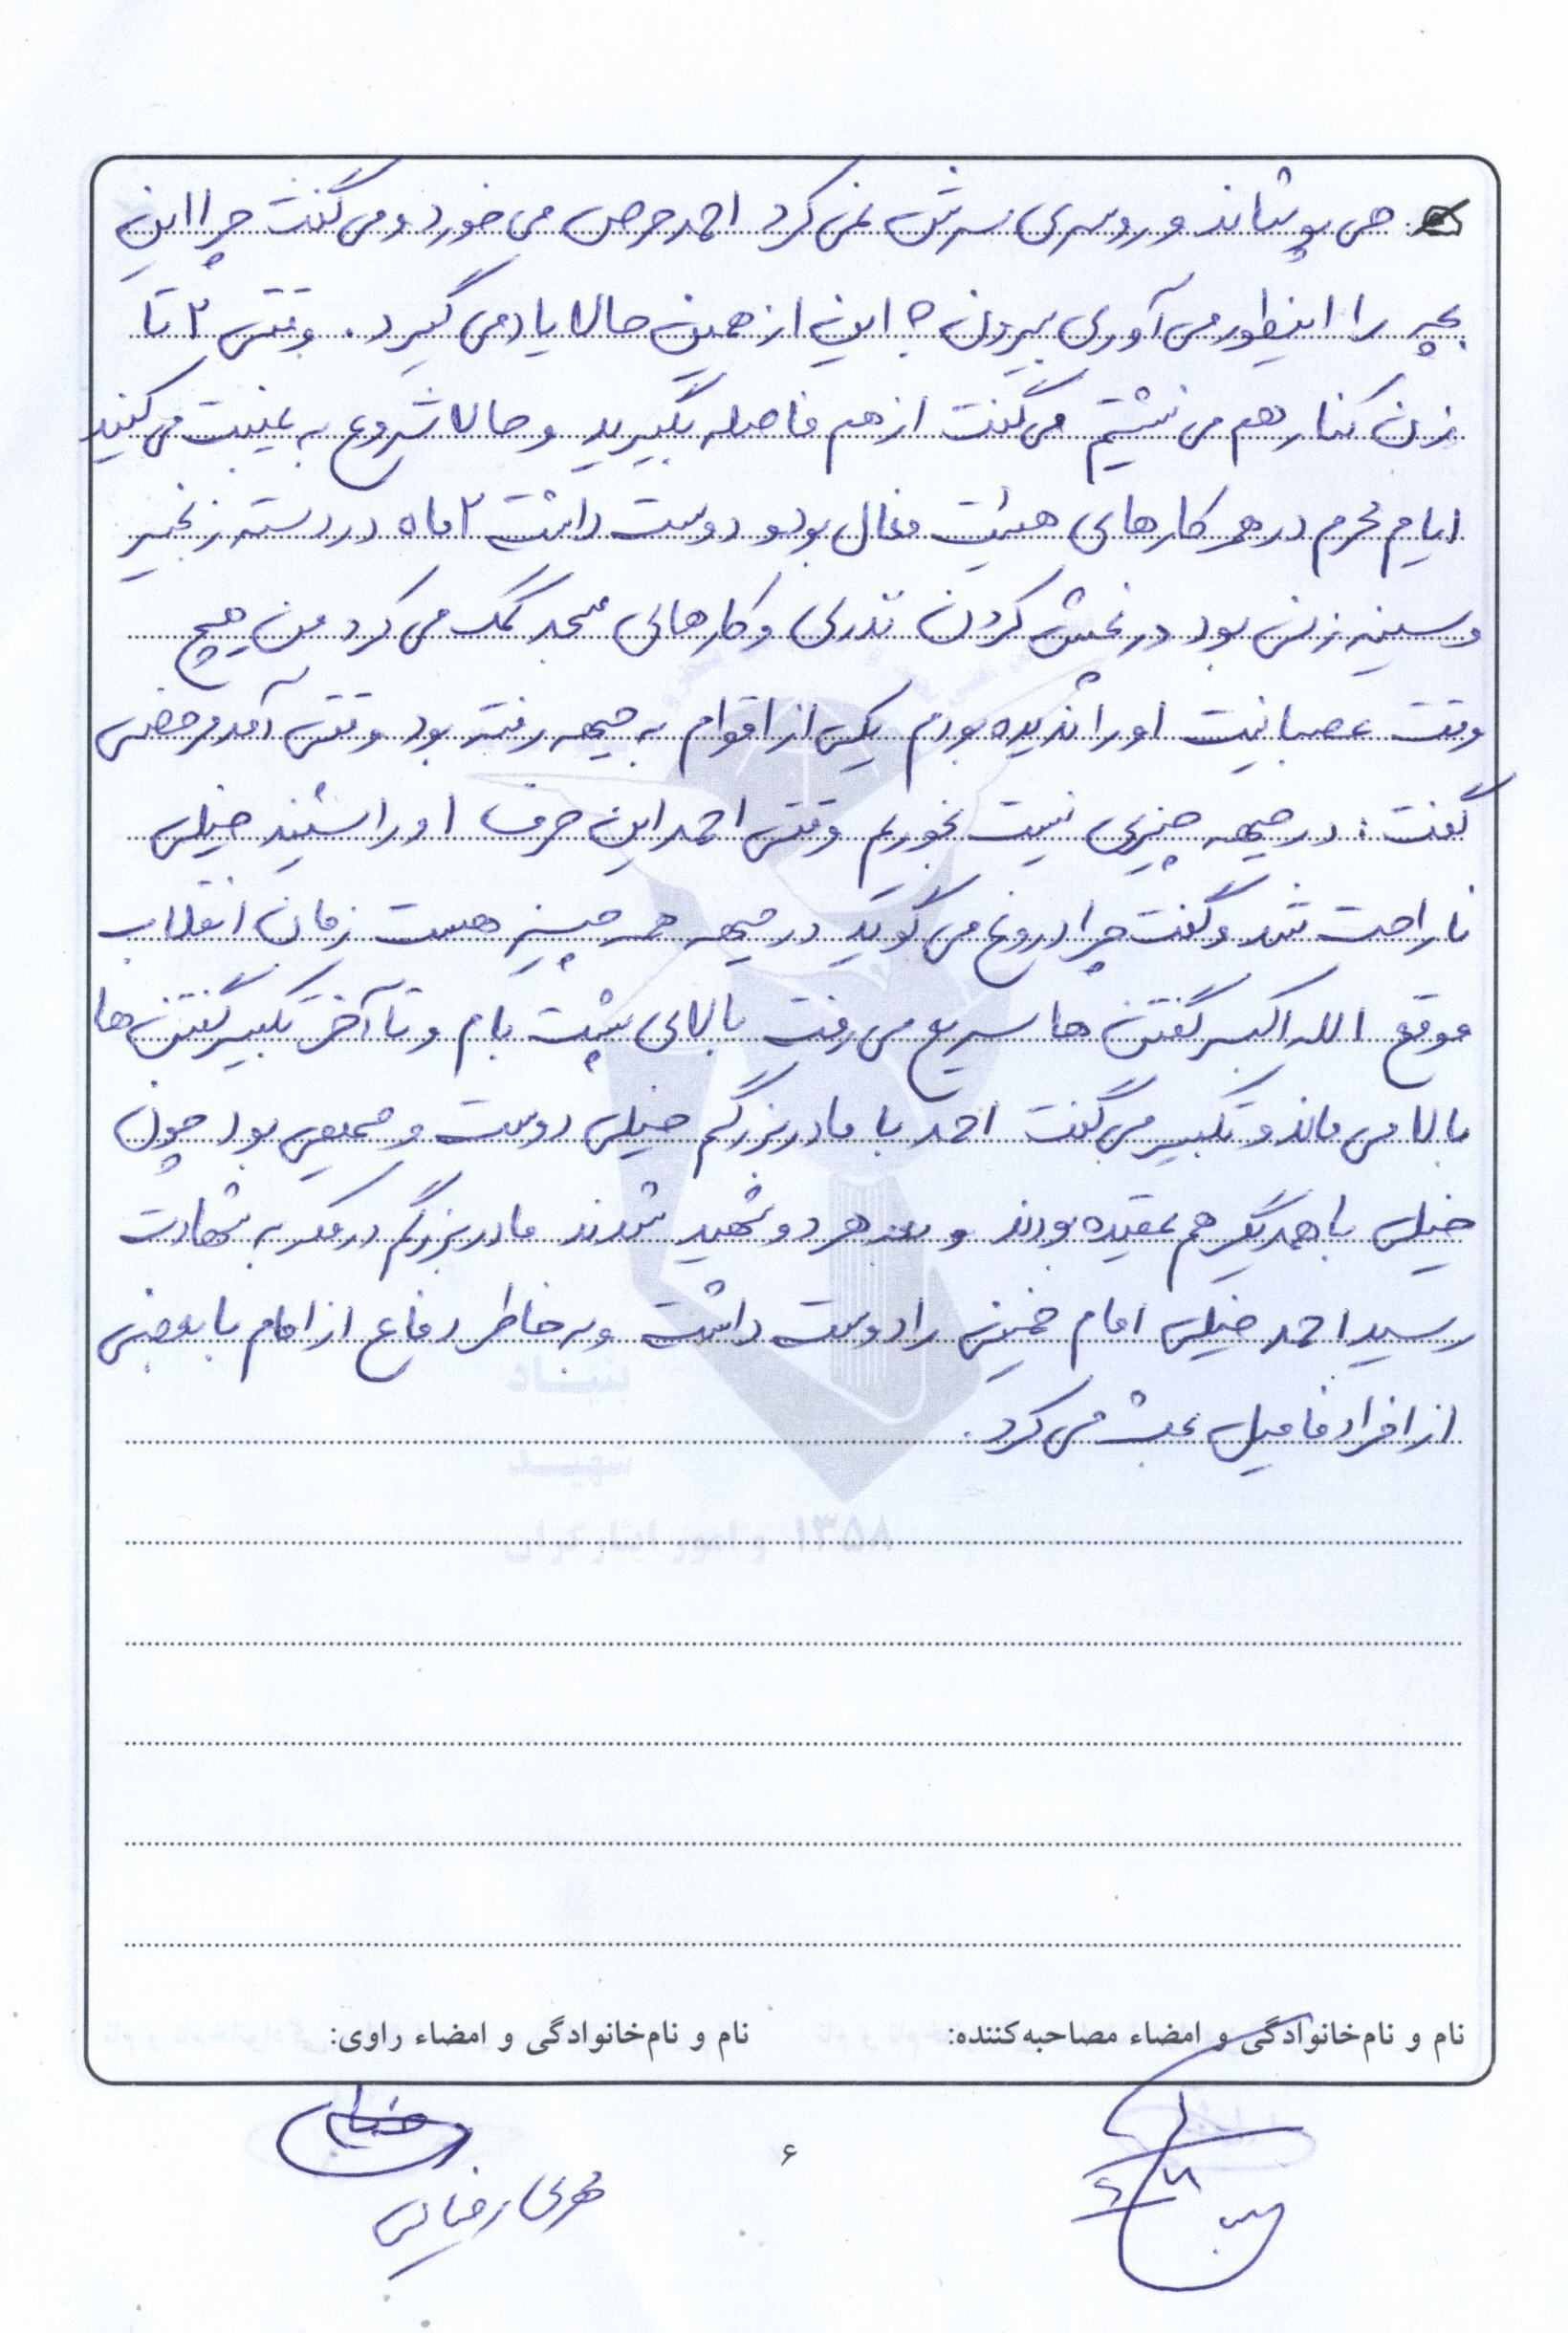 می پوشاند و روسری سرش نمی کرد احمد حرص می خورد و می گفت چرا این
بچه را اینطور می آوری بیرون ؟ این از همین حالا یاد می گیرد. وقتی ۲ تا
زن کنار هم می نشستیم می گفت از هم فاصله بگیرید و حالا شروع به غیبت می کنید
ایام محرم در همه کارهای هیئت فعال بود و دوست داشت ۲ ماه در دسته زنجیر
و سینه زنی بود در پخش کردن نذری و کارهای مسجد کمک می کرد من هیچ
وقت عصبانیت او را ندیده بودم یکی از اقوام به جبهه رفته بود وقتی آمد مرخصی
گفت : در جبهه چیزی نیست بخوریم وقتی احمد این حرف او را شنید خیلی
ناراحت شد و گفت چرا دروغ می گوئید در جبهه همه چیز هست زمان انقلاب
موقع الله اکبر گفتن ها سریع می رفت بالای پشت بام و تا آخر تکبیر گفتن ها
بالا می ماند و تکبیر می گفت احمد با مادربزرگم خیلی دوست و صمیمی بود چون
خیلی با همدیگر هم عقیده بودند و بعد هر دو شهید شدند مادربزرگم در مکه به شهادت
رسید احمد خیلی امام خمینی را دوست داشت و به خاطر دفاع از امام با بعضی
از افراد فامیل بحث می کرد.
نام و نام‌خانوادگی و امضاء مصاحبه‌کننده: نام و نام‌خانوادگی و امضاء راوی:
۶